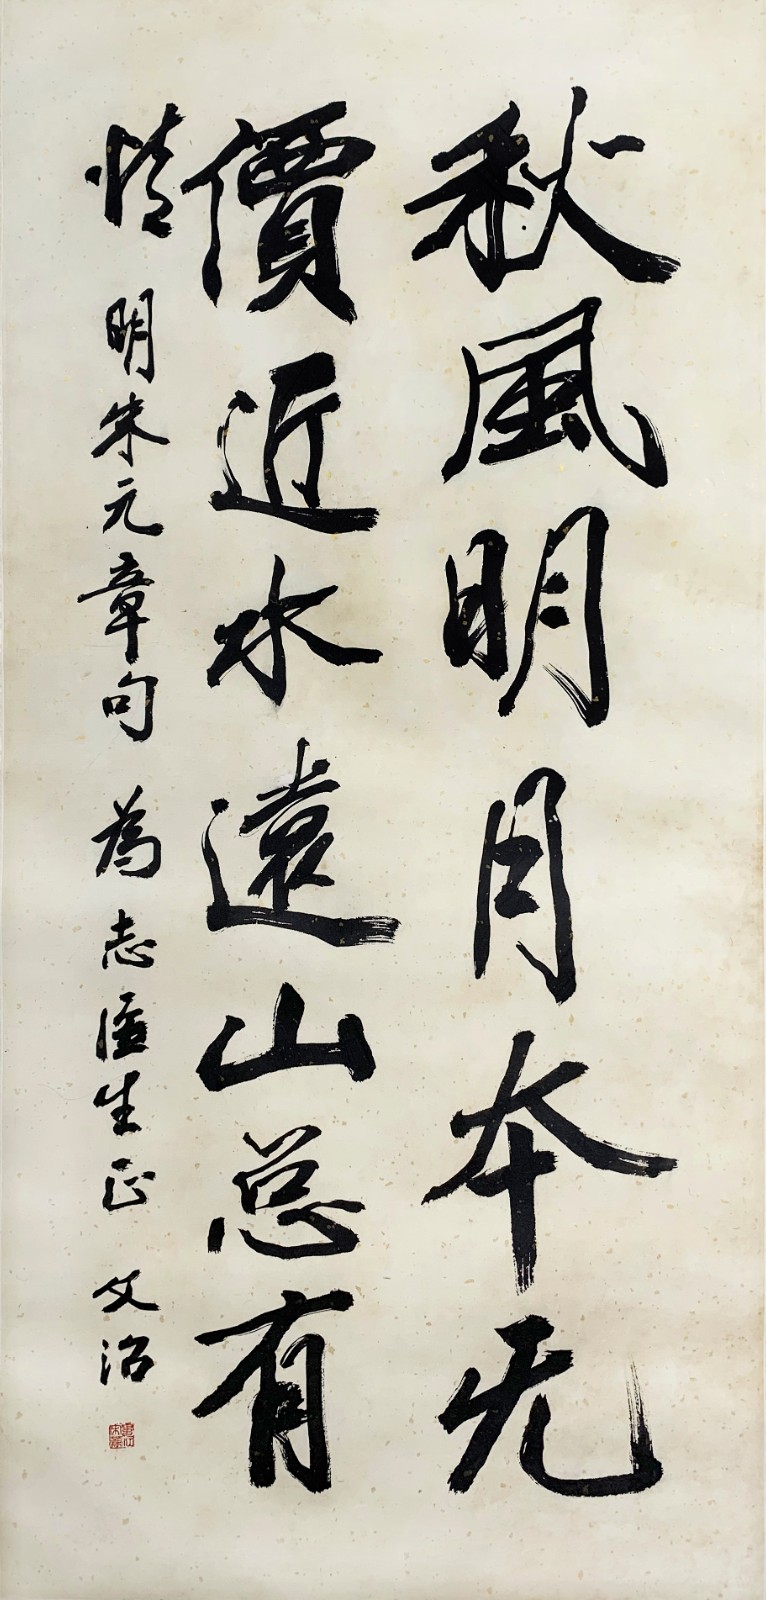 秋風明月本无
價近水遠山总有
情 明朱元章句 為志滙生正 文治